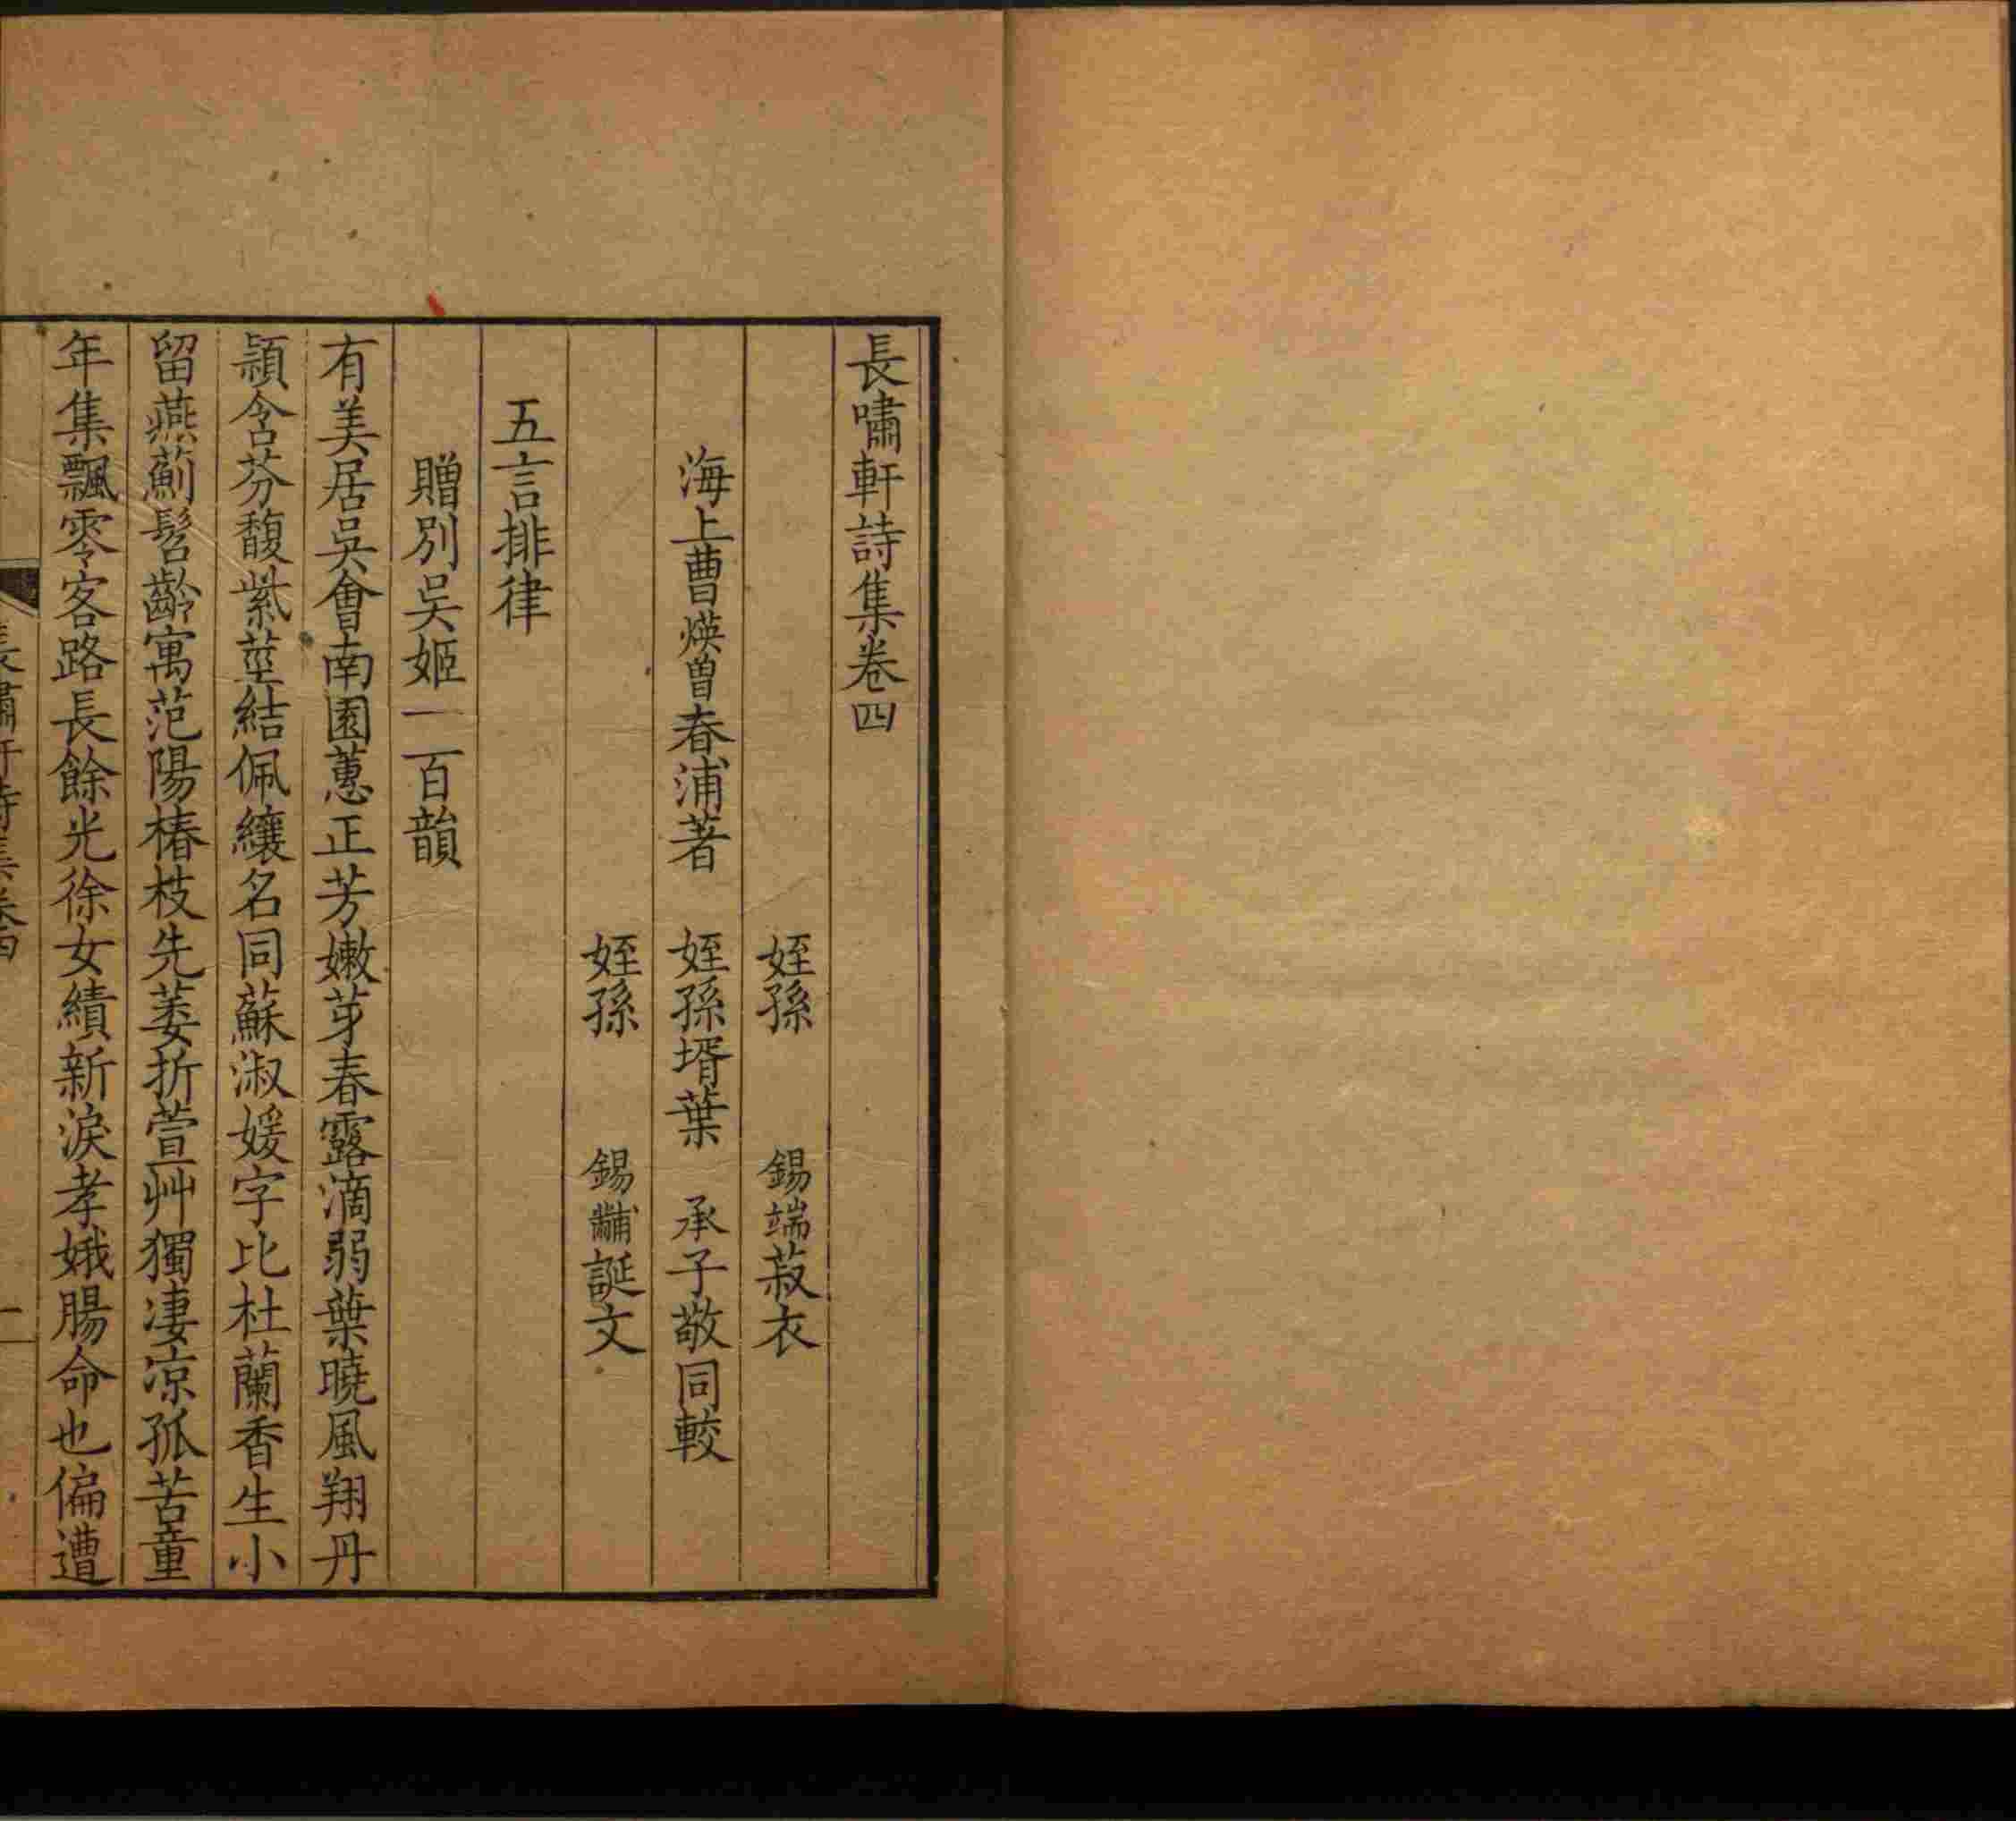 長嘯軒詩集卷四
姪孫 錫端菽衣
海上曹煐曾春浦著 姪孫壻葉 承子敬同較
姪孫 錫黼誕文
五言排律
贈別吳姬一百韻
有美居吳會南園蕙正芳嫩芽春露滴弱葉曉風翔丹
穎含芬馥紫莖結佩纕名同蘇淑媛字比杜蘭香生小
留燕薊髫齡寓范陽椿枝先萎折萱艸獨淒凉孤苦童
年集飄零客路長餘光徐女績新淚孝娥腸命也偏遭
長嘯軒詩集卷四
一